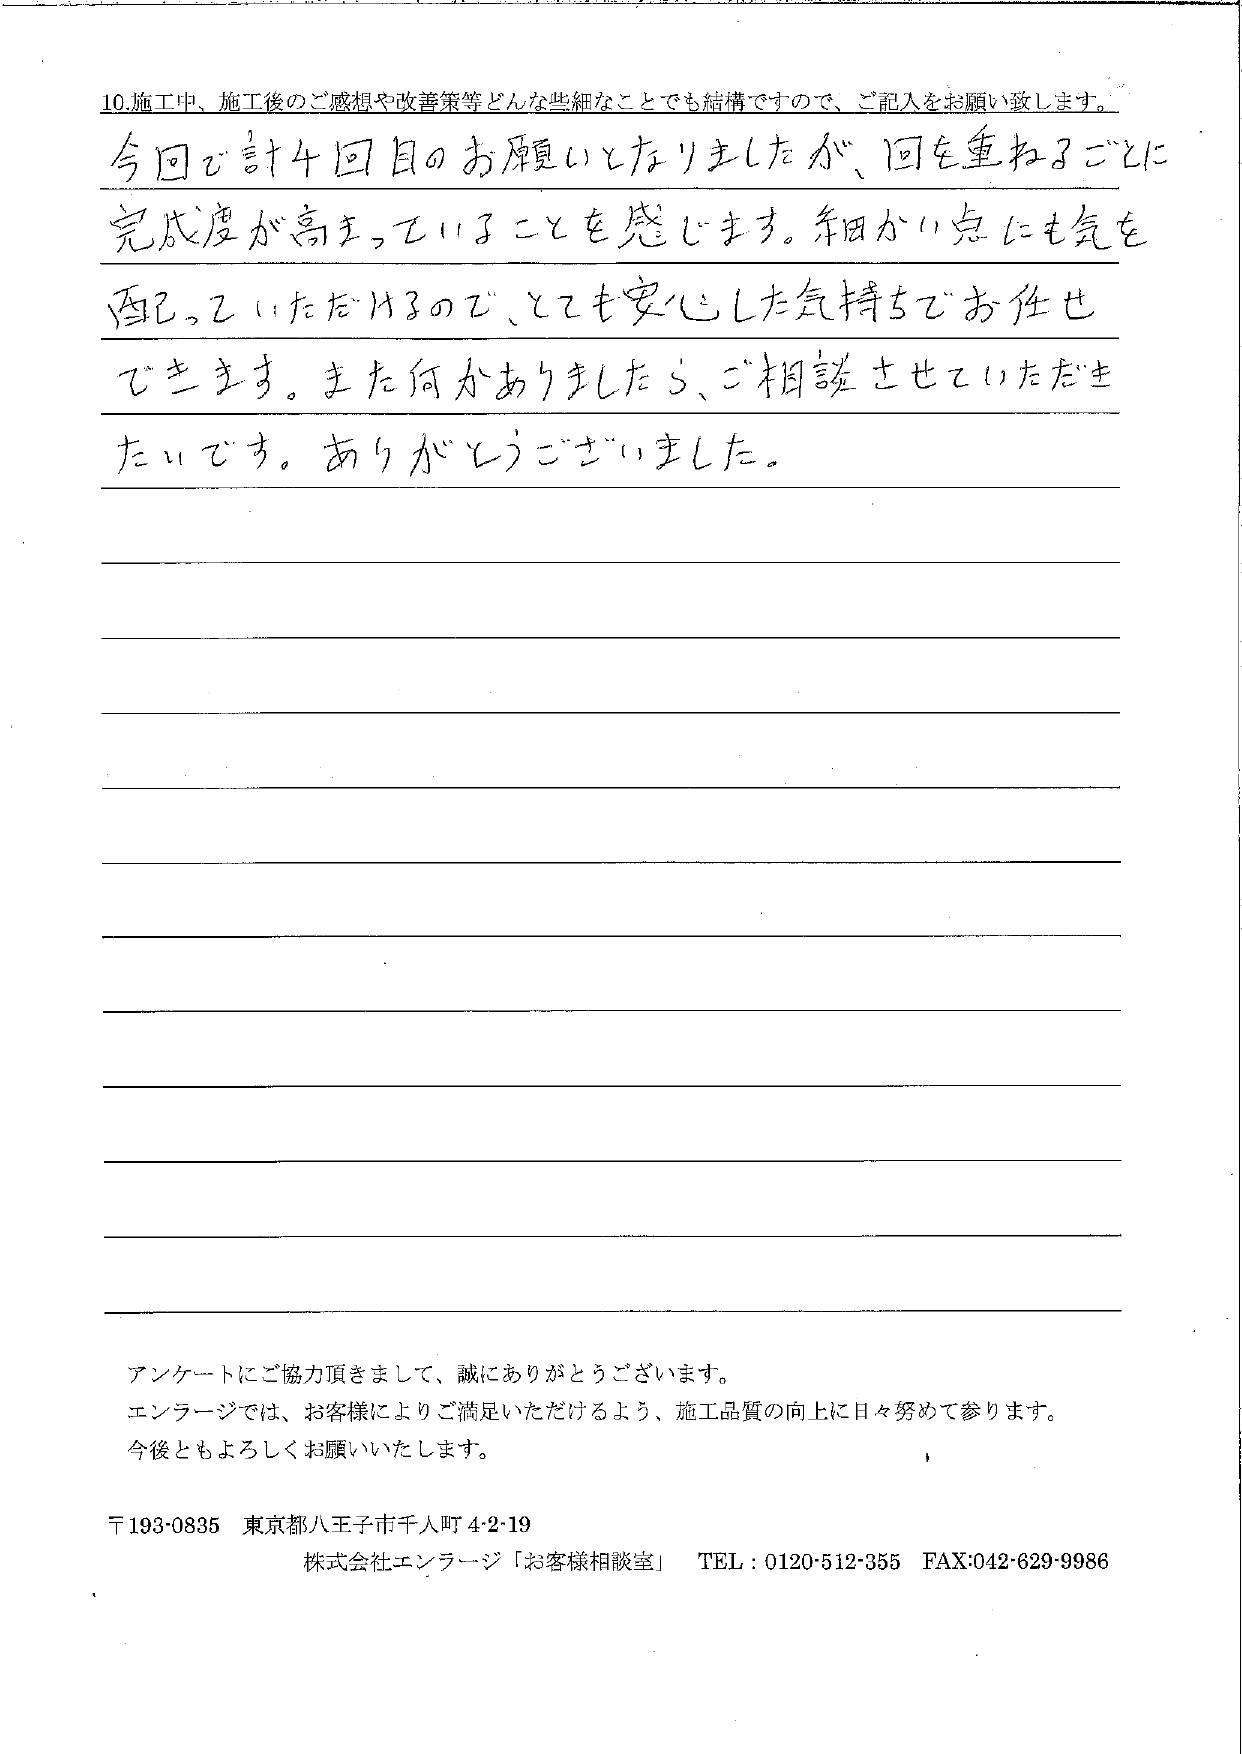 10.施工中、施工後のご感想や改善策等どんな些細なことでも結構ですので、ご記入をお願い致します。
今回で計4回目のお願いとなりましたが、回を重ねるごとに
完成度が高まっていることを感じます。細かい点にも気を
配っていただけるので、とても安心した気持ちでお任せ
できます。また何かありましたら、ご相談させていただき
たいです。ありがとうございました。
アンケートにご協力頂きまして、誠にありがとうございます。
エンラージでは、お客様によりご満足いただけるよう、施工品質の向上に日々努めて参ります。
今後ともよろしくお願いいたします。
〒193-0835 東京都八王子市千人町 4-2-19
株式会社エンラージ「お客様相談室」 TEL：0120-512-355 FAX:042-629-9986